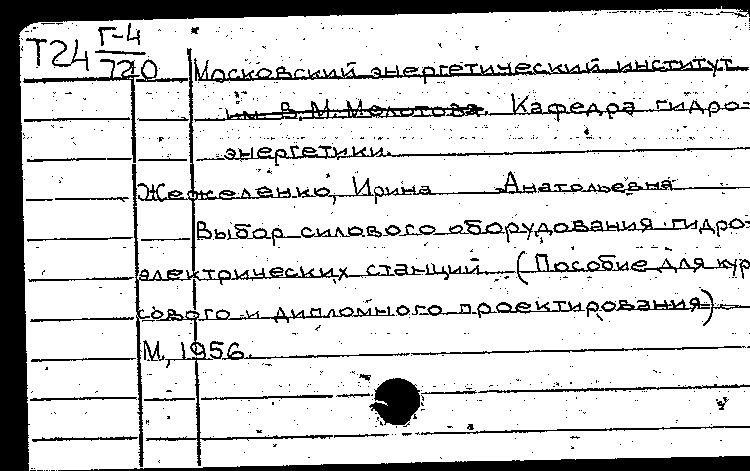 Т24 Г-4
720
Московский энергетический институт
им. В. М. Молотова. Кафедра гидро-
энергетики.
Жежеленко, Ирина Анатольевна
Выбор силового оборудования гидро-
электрических станций. (Пособие для кур
сового и дипломного проектирования).
М., 1956.